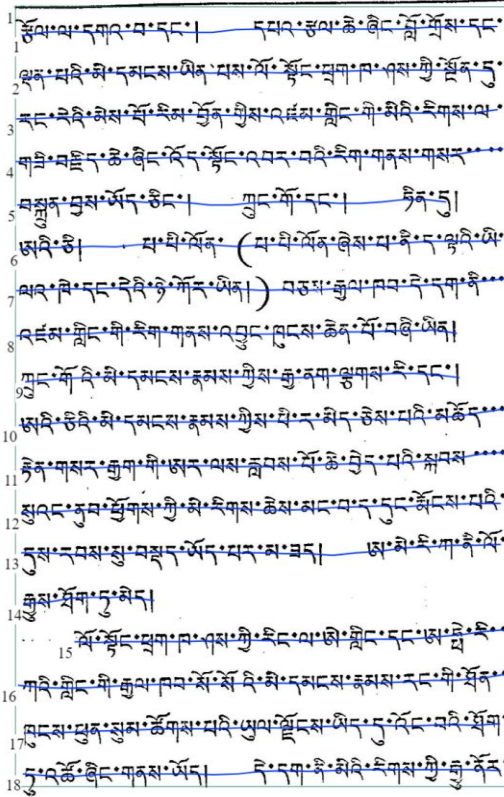 1 རྩོལ་ལ་དགའ་བ་དང་། དཔའ་རྩལ་ཆེ་ཞིང་བློ་གྲོས་དང་
1
2 ལྡན་པའི་མི་དམངས་ཡིན་པས་ལོ་སྟོང་ཕྲག་ཁ་ཤས་ཀྱི་སྔོན་དུ
3 རང་རེའི་མེས་པོ་རིམ་བྱོན་གྱིས་འཛམ་གླིང་གི་མིའི་རིགས་ལ
4 གཟི་བརྗིད་ཆེ་ཞིང་འོད་སྟོང་འབར་བའི་རིག་གནས་གསར་་་་
5 བསྐྲུན་བྱས་ཡོད་ཅིང་། ཀྲུང་གོ་དང་། ཧིན་དུ།
6 ཨའི་ཅི། པ་པི་ལོན་ (པ་པི་ལོན་ཞེས་པ་ནི་ད་ལྟའི་ཡི་
7 ལའ་ཁེ་དང་དེའི་ཉེ་ཀོར་ཡིན།) བཅས་རྒྱལ་ཁབ་དེ་དག་ནི་་་
8 འཛམ་གླིང་གི་རིག་གནས་འབྱུང་ཁུངས་ཆེན་པོ་བཞི་ཡིན།
9 ཀྲུང་གོ་འི་མི་དམངས་རྣམས་ཀྱིས་རྒྱ་ནག་ལྕགས་རི་དང་།
10 ཨའི་ཅིའི་མི་དམངས་རྣམས་ཀྱིས་པི་ར་མིད་ཅེས་པའི་མཆོད་་་
11 རྟེན་གསར་རྒྱག་གི་ཨར་ལས་རླབས་པོ་ཆེ་བྱེད་པའི་སྐབས་་་་
12 སུའང་ནུབ་ཕྱོགས་ཀྱི་མི་རིགས་ཆེས་མང་བ་ད་དུང་རྨོངས་པའི་
13 དུས་རབས་སུ་བསྡད་ཡོད་པར་མ་ཟད། ཨ་མེ་རི་ཀ་ནི་ལོ་
14 རྒྱུས་ཐོག་ཏུ་མེད།
15 ལོ་སྟོང་ཕྲག་ཁ་ཤས་ཀྱི་རིང་ལ་ཨེ་གླིང་དང་ཨ་ཧྥེ་རི་་་
16 ཀའི་གླིང་གི་རྒྱལ་ཁབ་སོ་སོ་འི་མི་དམངས་རྣམས་རང་གི་ཐོན་
17 ཁུངས་ཕུན་སུམ་ཚོགས་པའི་ཡུལ་ལྗོངས་ཡིད་དུ་འོང་བའི་ཐོག་
18 ཏུ་འཚོ་ཞིང་གནས་ཡོད། དེ་དག་ནི་མིའི་རིགས་ཀྱི་རྒྱུ་ནོར